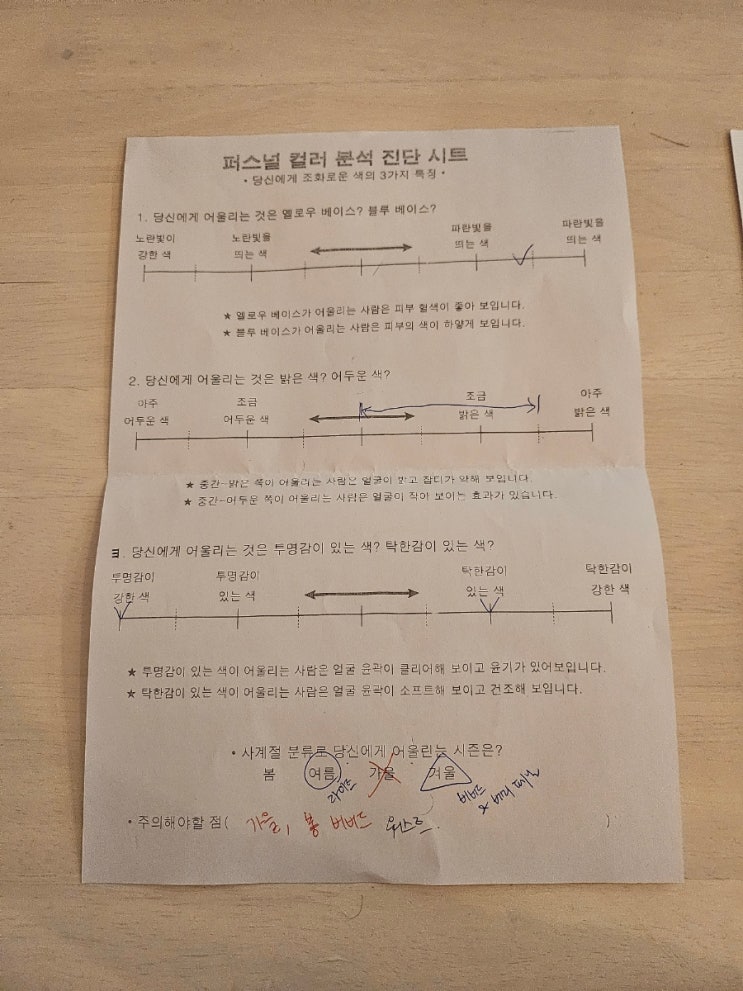 퍼스널 컬러 분석 진단 시트
• 당신에게 조화로운 색의 3가지 특징 •
1. 당신에게 어울리는 것은 옐로우 베이스? 블루 베이스?
노란빛이 노란빛을 파란빛을 파란빛을
강한 색 띄는 색 띄는 색 띄는 색
★ 옐로우 베이스가 어울리는 사람은 피부 혈색이 좋아 보입니다.
★ 블루 베이스가 어울리는 사람은 피부의 색이 하얗게 보입니다.
2. 당신에게 어울리는 것은 밝은 색? 어두운 색?
아주 조금 조금 아주
어두운 색 어두운 색 밝은 색 밝은 색
★ 중간~밝은 쪽이 어울리는 사람은 얼굴이 밝고 잡티가 약해 보입니다.
★ 중간~어두운 쪽이 어울리는 사람은 얼굴이 작아 보이는 효과가 있습니다.
3. 당신에게 어울리는 것은 투명감이 있는 색? 탁한감이 있는 색?
투명감이 투명감이 탁한감이 탁한감이
강한 색 있는 색 있는 색 강한 색
★ 투명감이 있는 색이 어울리는 사람은 얼굴 윤곽이 클리어해 보이고 윤기가 있어보입니다.
★ 탁한감이 있는 색이 어울리는 사람은 얼굴 윤곽이 소프트해 보이고 건조해 보입니다.
• 사계절 분류로 당신에게 어울린는 시즌은?
봄 여름 가을 겨울
라이트 비비드
• 주의해야할 점( 가을, 봄 비비드 워스트. )